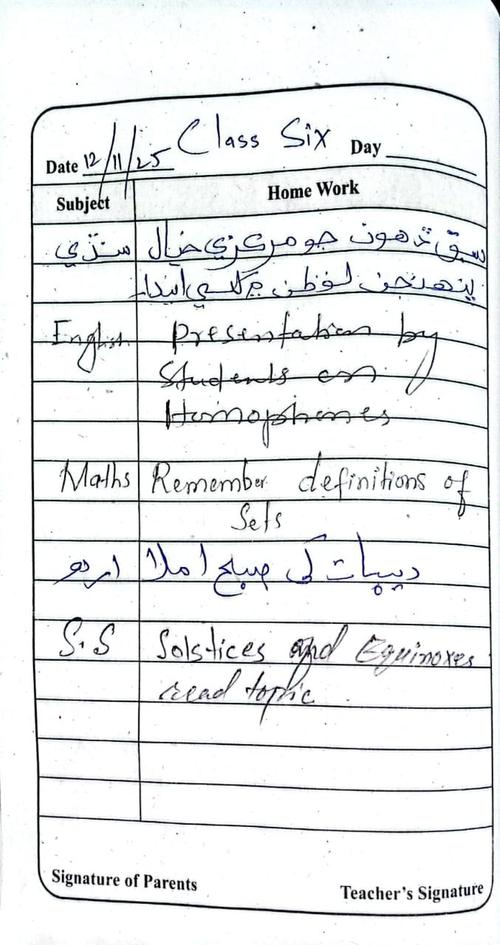 Class Six
Date 12/11/25 Day
Subject Home Work
سنڌي سبق ڏهون جو مرکزي خيال
پنهنجن لفظن ۾ لکي ايندا۔
English Presentation by
Students on
Homophones
Maths Remember definitions of
Sets
اردو دیہات کی صبح املا
S.S Solstices and Equinoxes
read topic
Signature of Parents Teacher's Signature